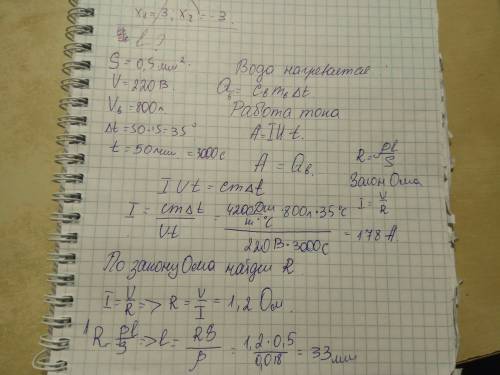 x₁ = 3, x₂ = -3.
l - ?
S = 0,5 мм²
V = 220 В.
V_в = 800 л
Δt = 50 - 15 = 35°
t = 50 мин = 3000 с
Вода нагревается
Q_в = c_в m_в Δt
Работа тока
A = IUt.
A = Q_в.
R = ρl/S
Закон Ома
I = V/R
IVt = cmΔt
I = cmΔt/Vt = 4200 Дж/кг·°С · 800 л · 35°С / 220 В · 3000 с = 178 А.
По закону Ома найдем R
I = V/R => R = V/I = 1,2 Ом.
R = ρl/S => l = RS/ρ = 1,2 · 0,5/0,018 = 33 мм